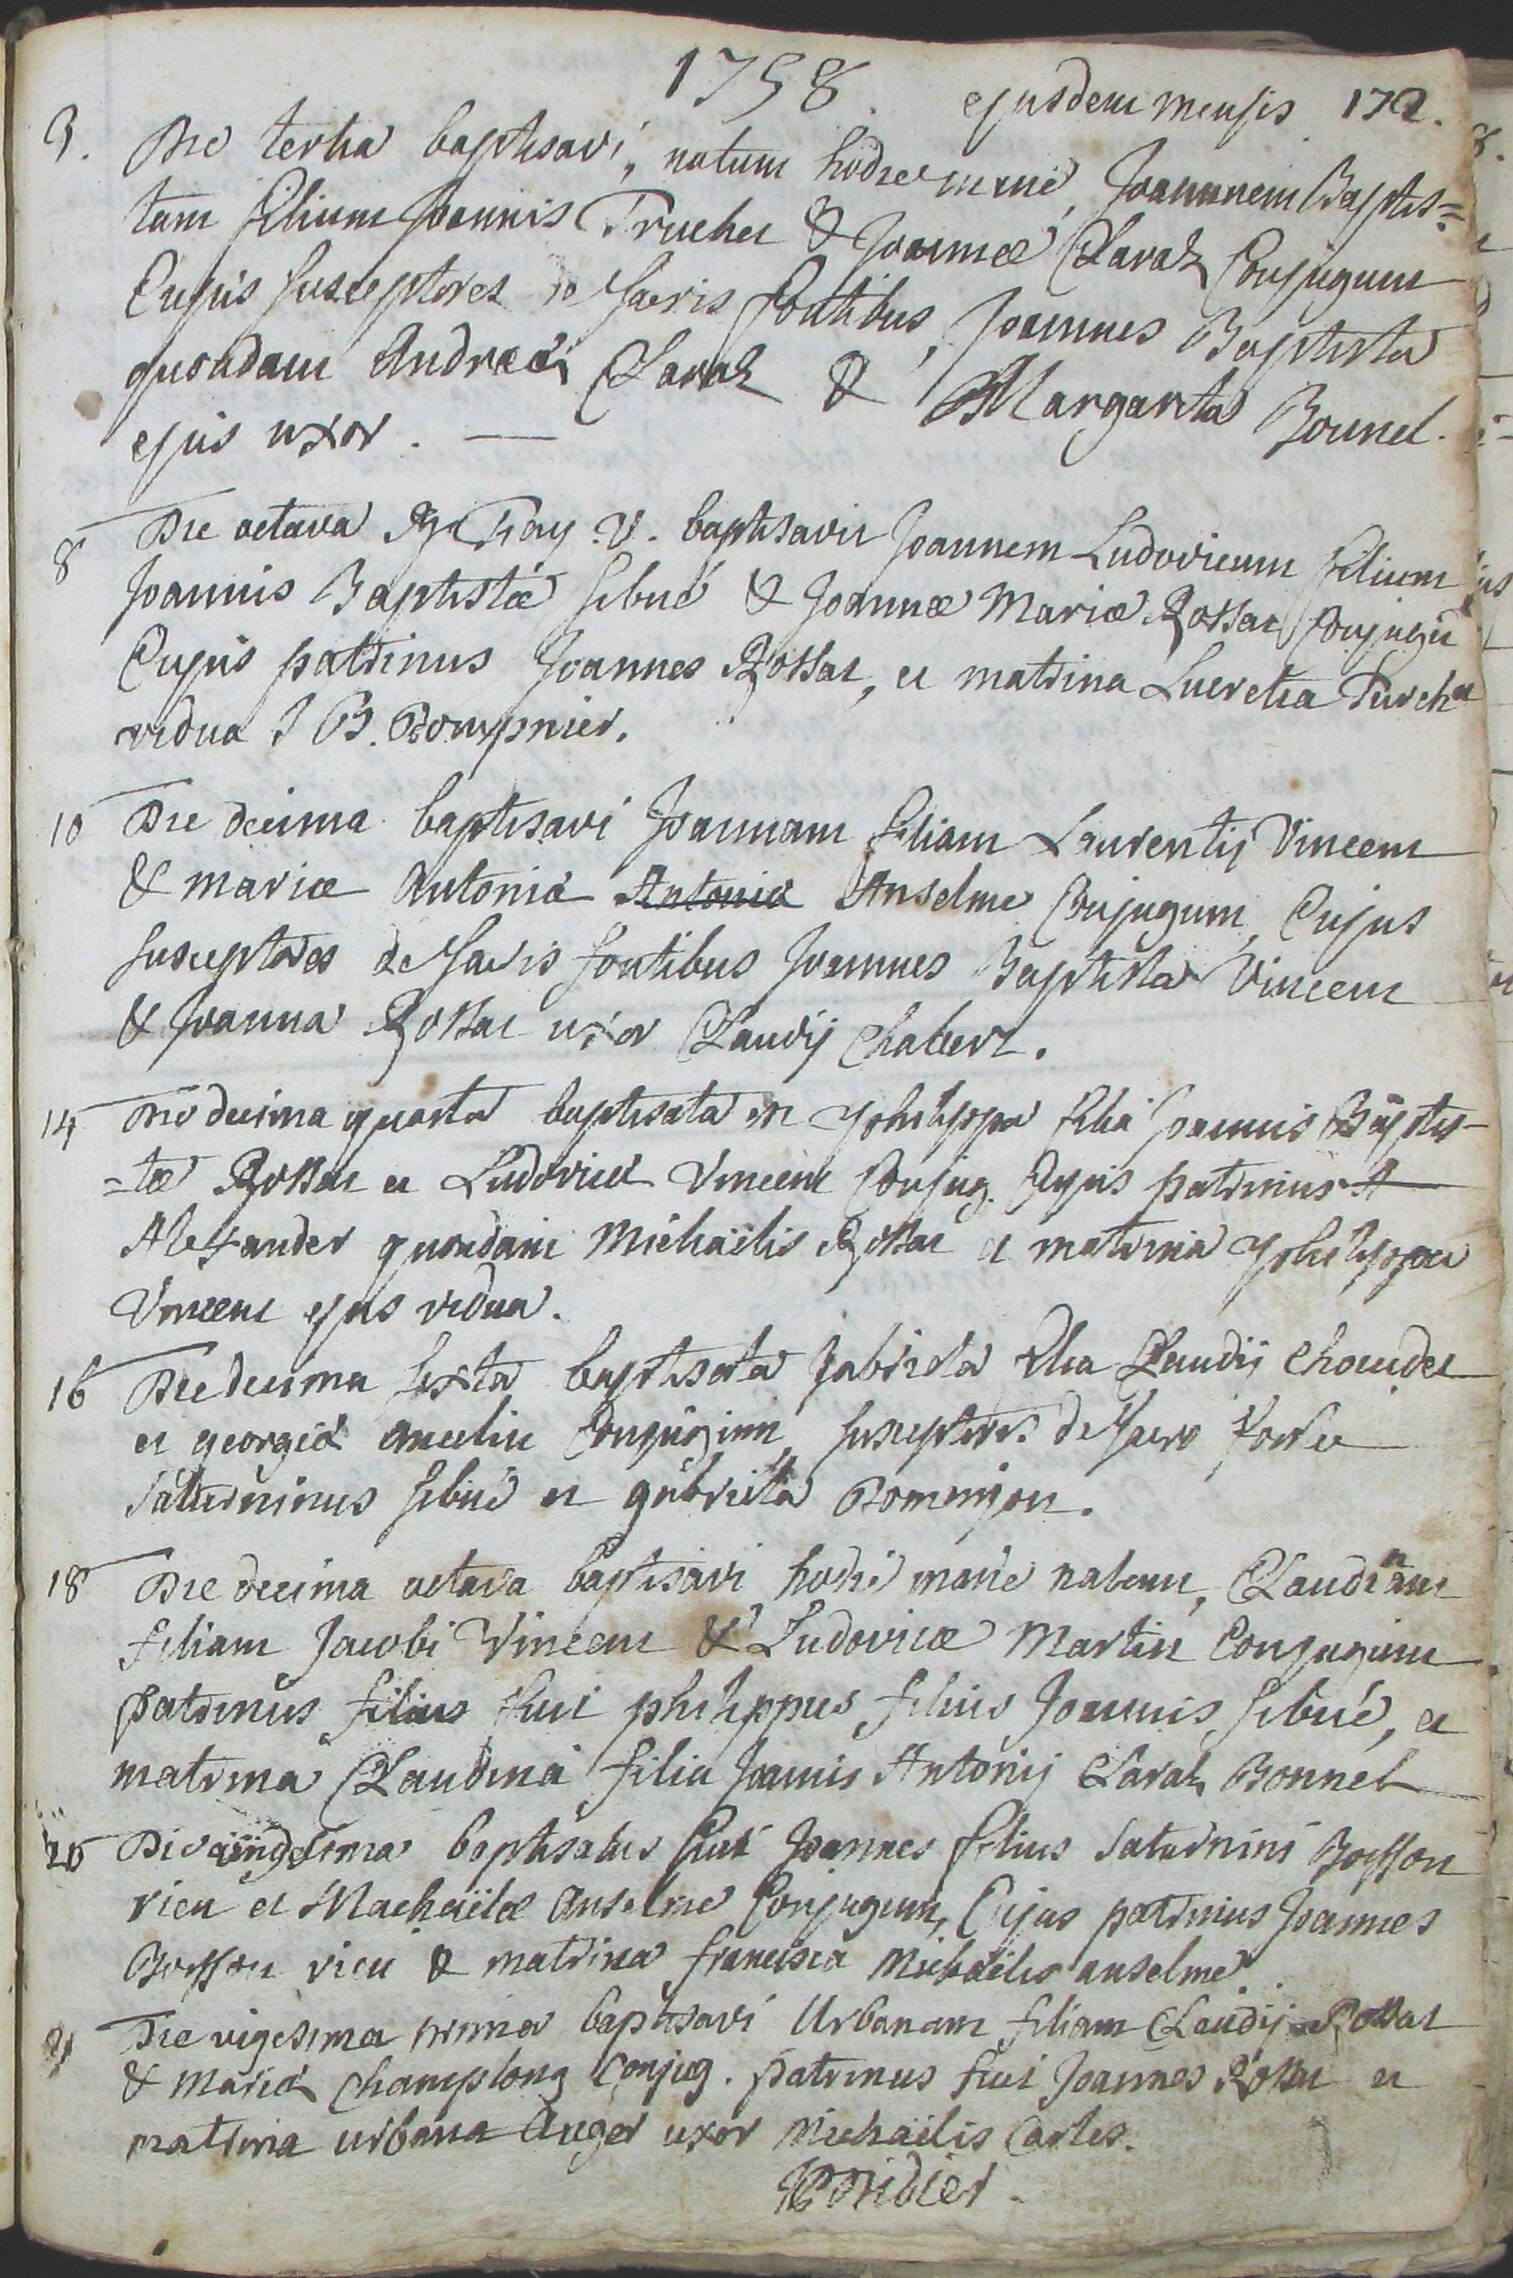 1758. ejusdem mensis 172.
3. Die tertia baptisavi, natum hodie mane, Joannnem Baptis=
tam filium Joannis Truchet & Joannæ Claraz Conjugum
Cujus susceptores de sacris fontibus, Joannes Baptista
quondam Andreæ Claraz & Margarita Bonnel
ejus uxor.
8 Die octava Rd Fay V. baptisavit Joannem Ludovicum filium
Joannis Baptistæ sibué & Joannæ Mariæ Rossat Conjugū
Cujus patrinus Joannes Rossat, et matrina Lucretia
vidua J B. Bompnier.
10 Die decima baptisavi Joannam filiam Laurentij Vincent
& mariæ Antoniæ Antonia Anselme Conjugum, Cujus
susceptores de sacris fontibus Joannes Baptista Vincent
& Joanna Rossat uxor Claudij Chabert.
14 Die decima quarta baptisata est philippa filia Joannis Baptis-
=tæ Rossat et Ludovicæ Vincent Conjug. Cujus patrinus A
Alexander quondam Michaëlis Rossat et matrina philippa
Vincent ejus vidua.
16 Die decima sexta baptisata gabriela filia Claudij Choudet
et georgiæ Ancelin Conjugum, susceptores de sacro fonte
Saturninus sibué et gabriela Bommjon.
18 Die decima octava baptisavi hodie mane natam, Claudinam
filiam Jacobi Vincent & Ludovicæ Martin Conjugum
patrinus filius fuit philippus filius Joannis sibué, et
matrina Claudina filia Joannis Antonij Claraz Bonnel
20 Die vigesima baptisatus fuit Joannes filius Saturnini Bosson
vieu et Machaëlæ Anselme Conjugum, Cujus patrinus Joannes
Bosson vieu & matrina francisca Michaëlis anselme
21 Die vigesima prima baptisavi Urbanam filiam Claudij Rossat
& Mariæ Champlong Conjug. patrinus fuit Joannes Rossat et
matrina urbana Auger uxor Michaëlis Carles.